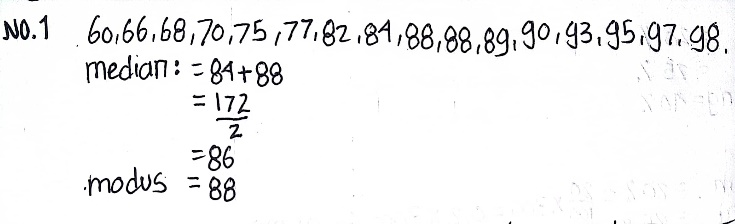 NO.1 60,66,68,70,75,77,82,84,88,88,89,90,93,95,97,98.
median: = 84+88
= 172
2
= 86
modus = 88